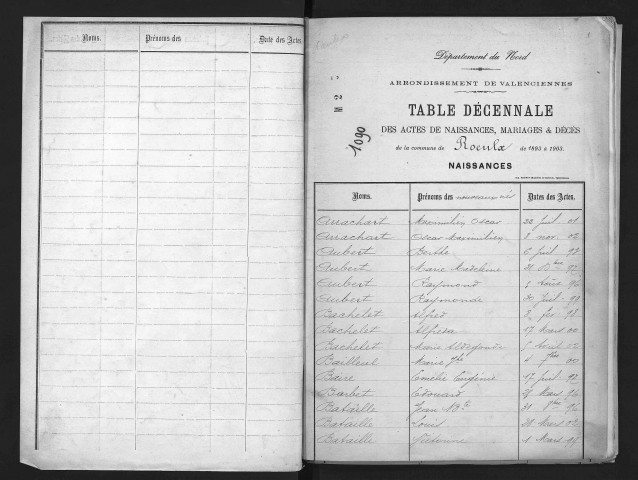 Noms. Prénoms des Date des Actes.
N 2
1090
Département du Nord
ARRONDISSEMENT DE VALENCIENNES
TABLE DÉCENNALE
DES ACTES DE NAISSANCES, MARIAGES & DÉCÈS
de la commune de Roeulx de 1893 à 1903.
NAISSANCES
Noms. Prénoms des nouveaux nés Dates des Actes.
Anachart Maximilien Oscar 22 Juil 01
Anachart Oscar Maximilien 8 nov 02
Aubert Berthe 6 Juil 98
Aubert Marie Madeleine 31 Xbre 97
Aubert Raymond 96
Aubert Raymonde Juil 98
Bachelet Alfred 98
Bachelet Alfréda 17 Mars 00
Bachelet Marie Aldegonde Août 02
Bailleul Marie 7bre 00
Bare Eugénie 17 Juil 97
Barbet Edouard Mars 96
Bataille Jean Bte 31 8bre 96
Bataille Louis 28 Mars 02
Bataille Victorine 1 Mars 98